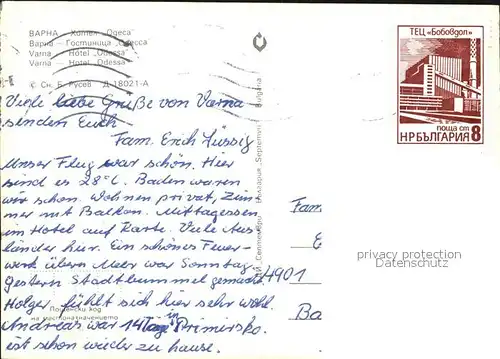 ВАРНА — Хотел „Одеса"
Варна — Гостиница „Одесса
Varna — Hotel „Odessa"
Varna — Hotel „Odessa"
© Сн. Б. Русев Д-18021-А
Viele liebe Grüße von Varna
senden Euch
Fam. Erich Füssig
Unser Flug war schön. Hier
sind es 28°C. Baden waren
wir schon. Wohnen privat, Zim-
mer mit Balkon. Mittagessen
im Hotel auf Karte. Viele Aus-
länder hier. Ein schönes Feuer-
werk übern Meer war Sonntag,
gestern Stadtbummel gemacht.
Holger, fühlt sich hier sehr wohl.
Andreas war 14 Tage in Primorsko.
ist schon wieder zu hause.
Пощенски код
на местоназначението
България „Септември"
Bulgaria
ТЕЦ „Бобовдол"
поща ст
НРБЪЛГАРИЯ 8
Fam
E
4901
Ba
privacy protection
Datenschutz